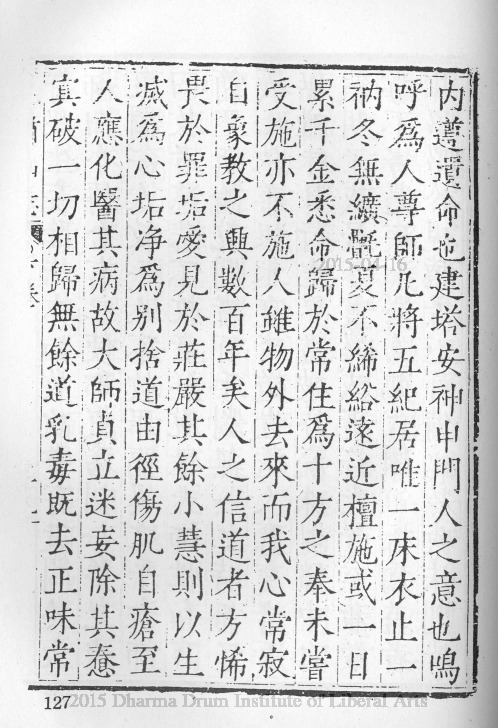 內遵遺命也建塔安神申門人之意也嗚
呼為人尊師凡將五紀居唯一床衣止一
衲冬無纊氎夏不絺綌遠近檀施或一日
累千金悉命歸於常住為十方之奉未嘗
受施亦不施人雖物外去來而我心常寂
自象教之興數百年矣人之信道者方怖
畏於罪垢愛見於莊嚴其餘小慧則以生
滅為心垢净為別捨道由徑傷肌自瘡至
人應化醫其病故大師貞立迷妄除其惷
寘破一切相歸無餘道乳毒既去正味常
127
2015 Dharma Drum Institute of Liberal Arts
2015-04-16